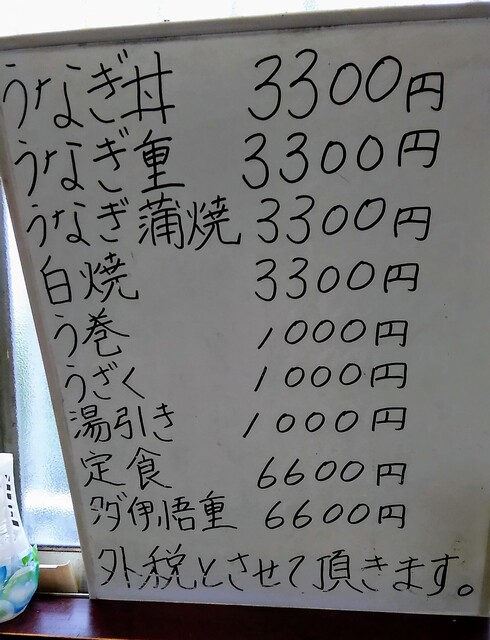 うなぎ丼 3300円
うなぎ重 3300円
うなぎ蒲焼 3300円
白焼 3300円
う巻 1000円
うざく 1000円
湯引き 1000円
定食 6600円
タダ伊悟重 6600円
外税とさせて頂きます。